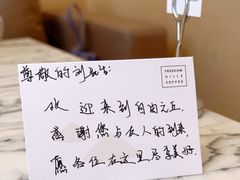 尊敬的刘
FREEDOM
HILLS
COFFEE
欢迎来到自由之丘.
感谢您与友人的到来
愿各位在这里享美好.